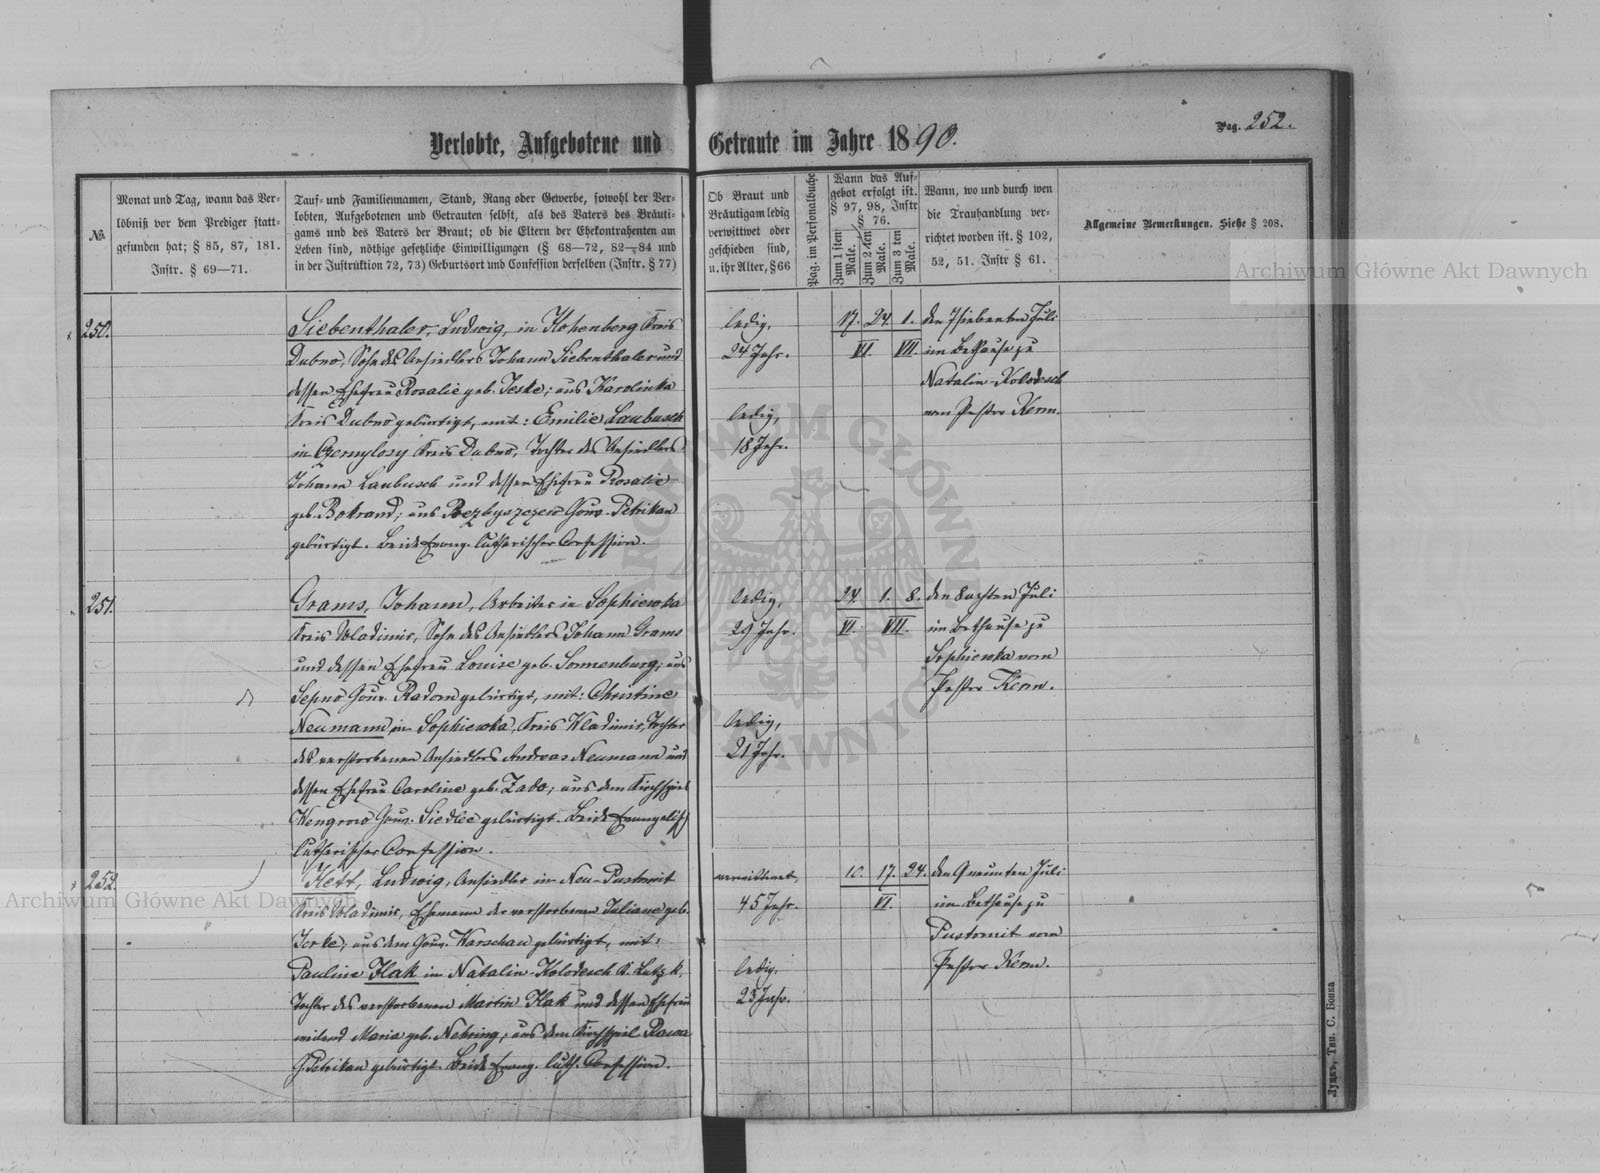 Pag. 252.
Verlobte, Aufgebotene und Getraute im Jahre 1890.
No.
Monat und Tag, wann das Ver-
löbniß vor dem Prediger statt-
gefunden hat; § 85, 87, 181.
Instr. § 69—71.
Tauf- und Familiennamen, Stand, Rang oder Gewerbe, sowohl der Ver-
lobten, Aufgebotenen und Getrauten selbst, als des Vaters des Bräuti-
gams und des Vaters der Braut; ob die Eltern der Ehekontrahenten am
Leben sind, nöthige gesetzliche Einwilligungen (§ 68—72, 82—84 und
in der Justrüktion 72, 73) Geburtsort und Confession derselben (Instr. § 77)
Ob Braut und
Bräutigam ledig
verwittwet oder
geschieden sind,
u. ihr Alter, § 66
Pag. im Personalbuche
Wann das Auf-
gebot erfolgt ist.
§ 97, 98, Instr
§ 76.
Zum 1 sten
Male.
Zum 2 ten
Male.
Zum 3 ten
Male.
Wann, wo und durch wen
die Trauhandlung ver-
richtet worden ist. § 102,
52, 51. Instr § 61.
Allgemeine Bemerkungen. Siehe § 208.
250.
Siebenthaler, Ludwig, in Hohenberg Kreis
Dubno, Sohn des Ansiedlers Johann Siebenthaler und
dessen Ehefrau Rosalie geb. Jeske; aus Karolinka
Kreis Dubno gebürtigt, mit: Emilie Laubusch
in Czernylosy Kreis Dubno, Tochter des Ansiedlers
Johann Laubusch und dessen Ehefrau Rosalie
geb. Bokrand; aus Gouv. Petrikau
gebürtigt. Beide Evang. lutherischer Confession.
ledig,
24 Jahr.
ledig,
18 Jahr.
17. 24. 1.
VI. VII.
den 7 siebenten Juli
im Bethause zu
Natalin-Kolodesch
vom Pastor Kerm.
251.
Grams, Johann, Arbeiter in Sophiewka
Kreis Wladimir, Sohn des Ansiedlers Johann Grams
und dessen Ehefrau Louise geb. Sonnenburg; aus
Sepno Gouv. Radom gebürtigt, mit: Christine
Neumann in Sophiewka, Kreis Wladimir, Tochter
des verstorbenen Ansiedlers Andreas Neumann und
dessen Ehefrau Caroline geb. Zabo; aus dem Kirchspiel
Wengrow Gouv. Siedlce gebürtigt. Beide Evangelisch
lutherischer Confession.
ledig,
29 Jahr.
ledig,
21 Jahr.
24. 1. 8.
VI. VII.
den 8 achten Juli
im Bethause zu
Sophiewka vom
Pastor Kerm.
252.
Hett, Ludwig, Ansiedler in Neu-Pustomit
Kreis Wladimir, Ehemann der verstorbenen Juliane geb.
aus dem Gouv. Warschau gebürtigt, mit:
Pauline Flak in Natalin-Kolodesch K. Lutzk,
Tochter des verstorbenen Martin Flak und dessen Ehefrau
weiland Maria geb. Nehring; aus dem Kirchspiel Rawa
G. Petrikau gebürtigt. Beide Evang. luth. Confession.
verwittwet,
45 Jahr.
ledig,
23 Jahr.
10. 17. 24.
VI.
den 9 neunten Juli
im Bethause zu
Pustomit vom
Pastor Kerm.
Луцкъ, Тип. С. Бонка
Archiwum Główne Akt Dawnych
Archiwum Główne Akt Dawnych
ARCHIWUM GŁÓWNE AKT DAWNYCH